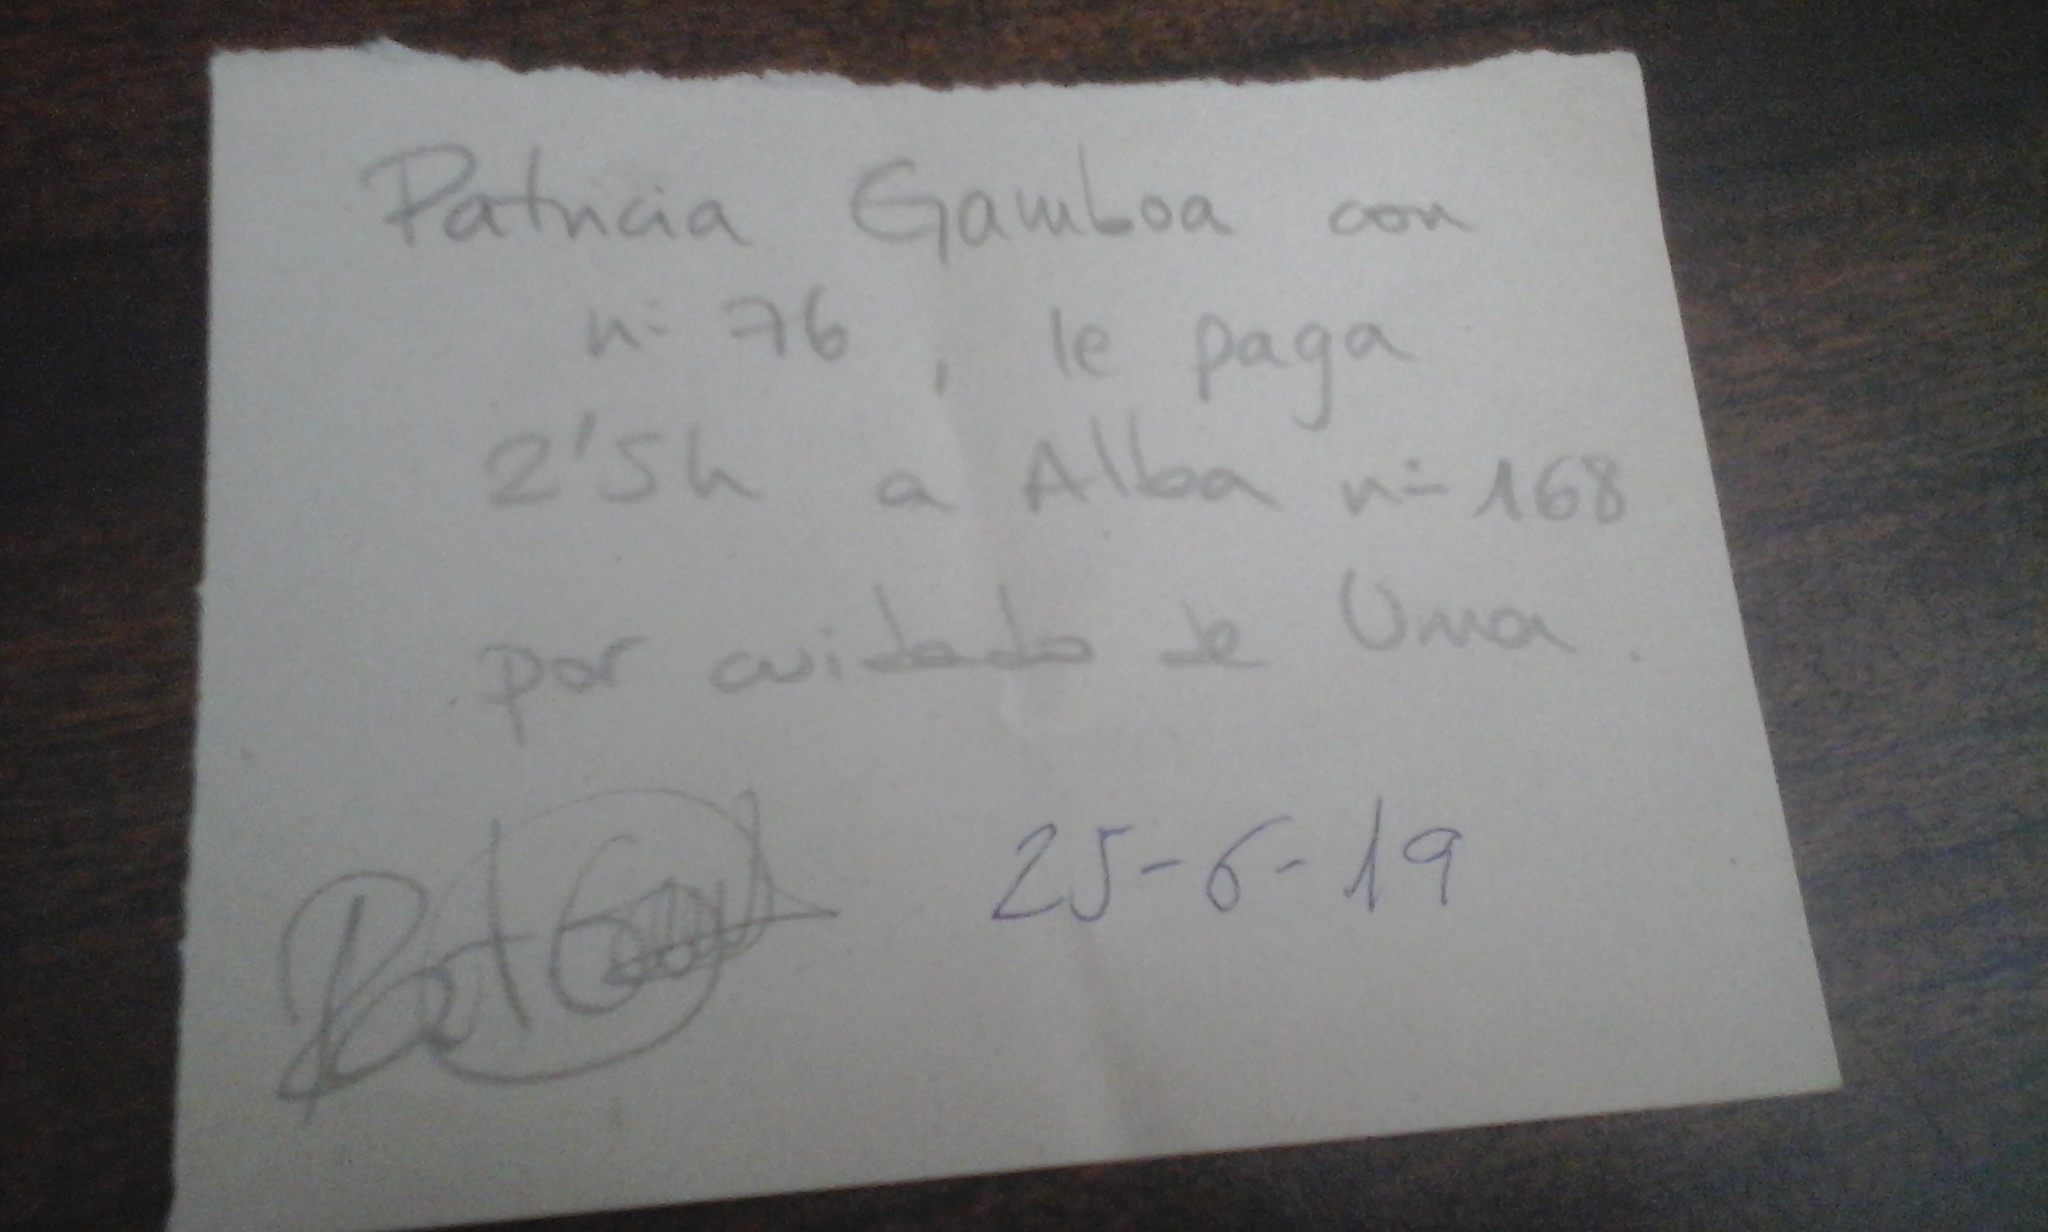 Patricia Gamboa con
nº 76, le paga
2'5h a Alba nº 168
por cuidado de Uma.
25-6-19